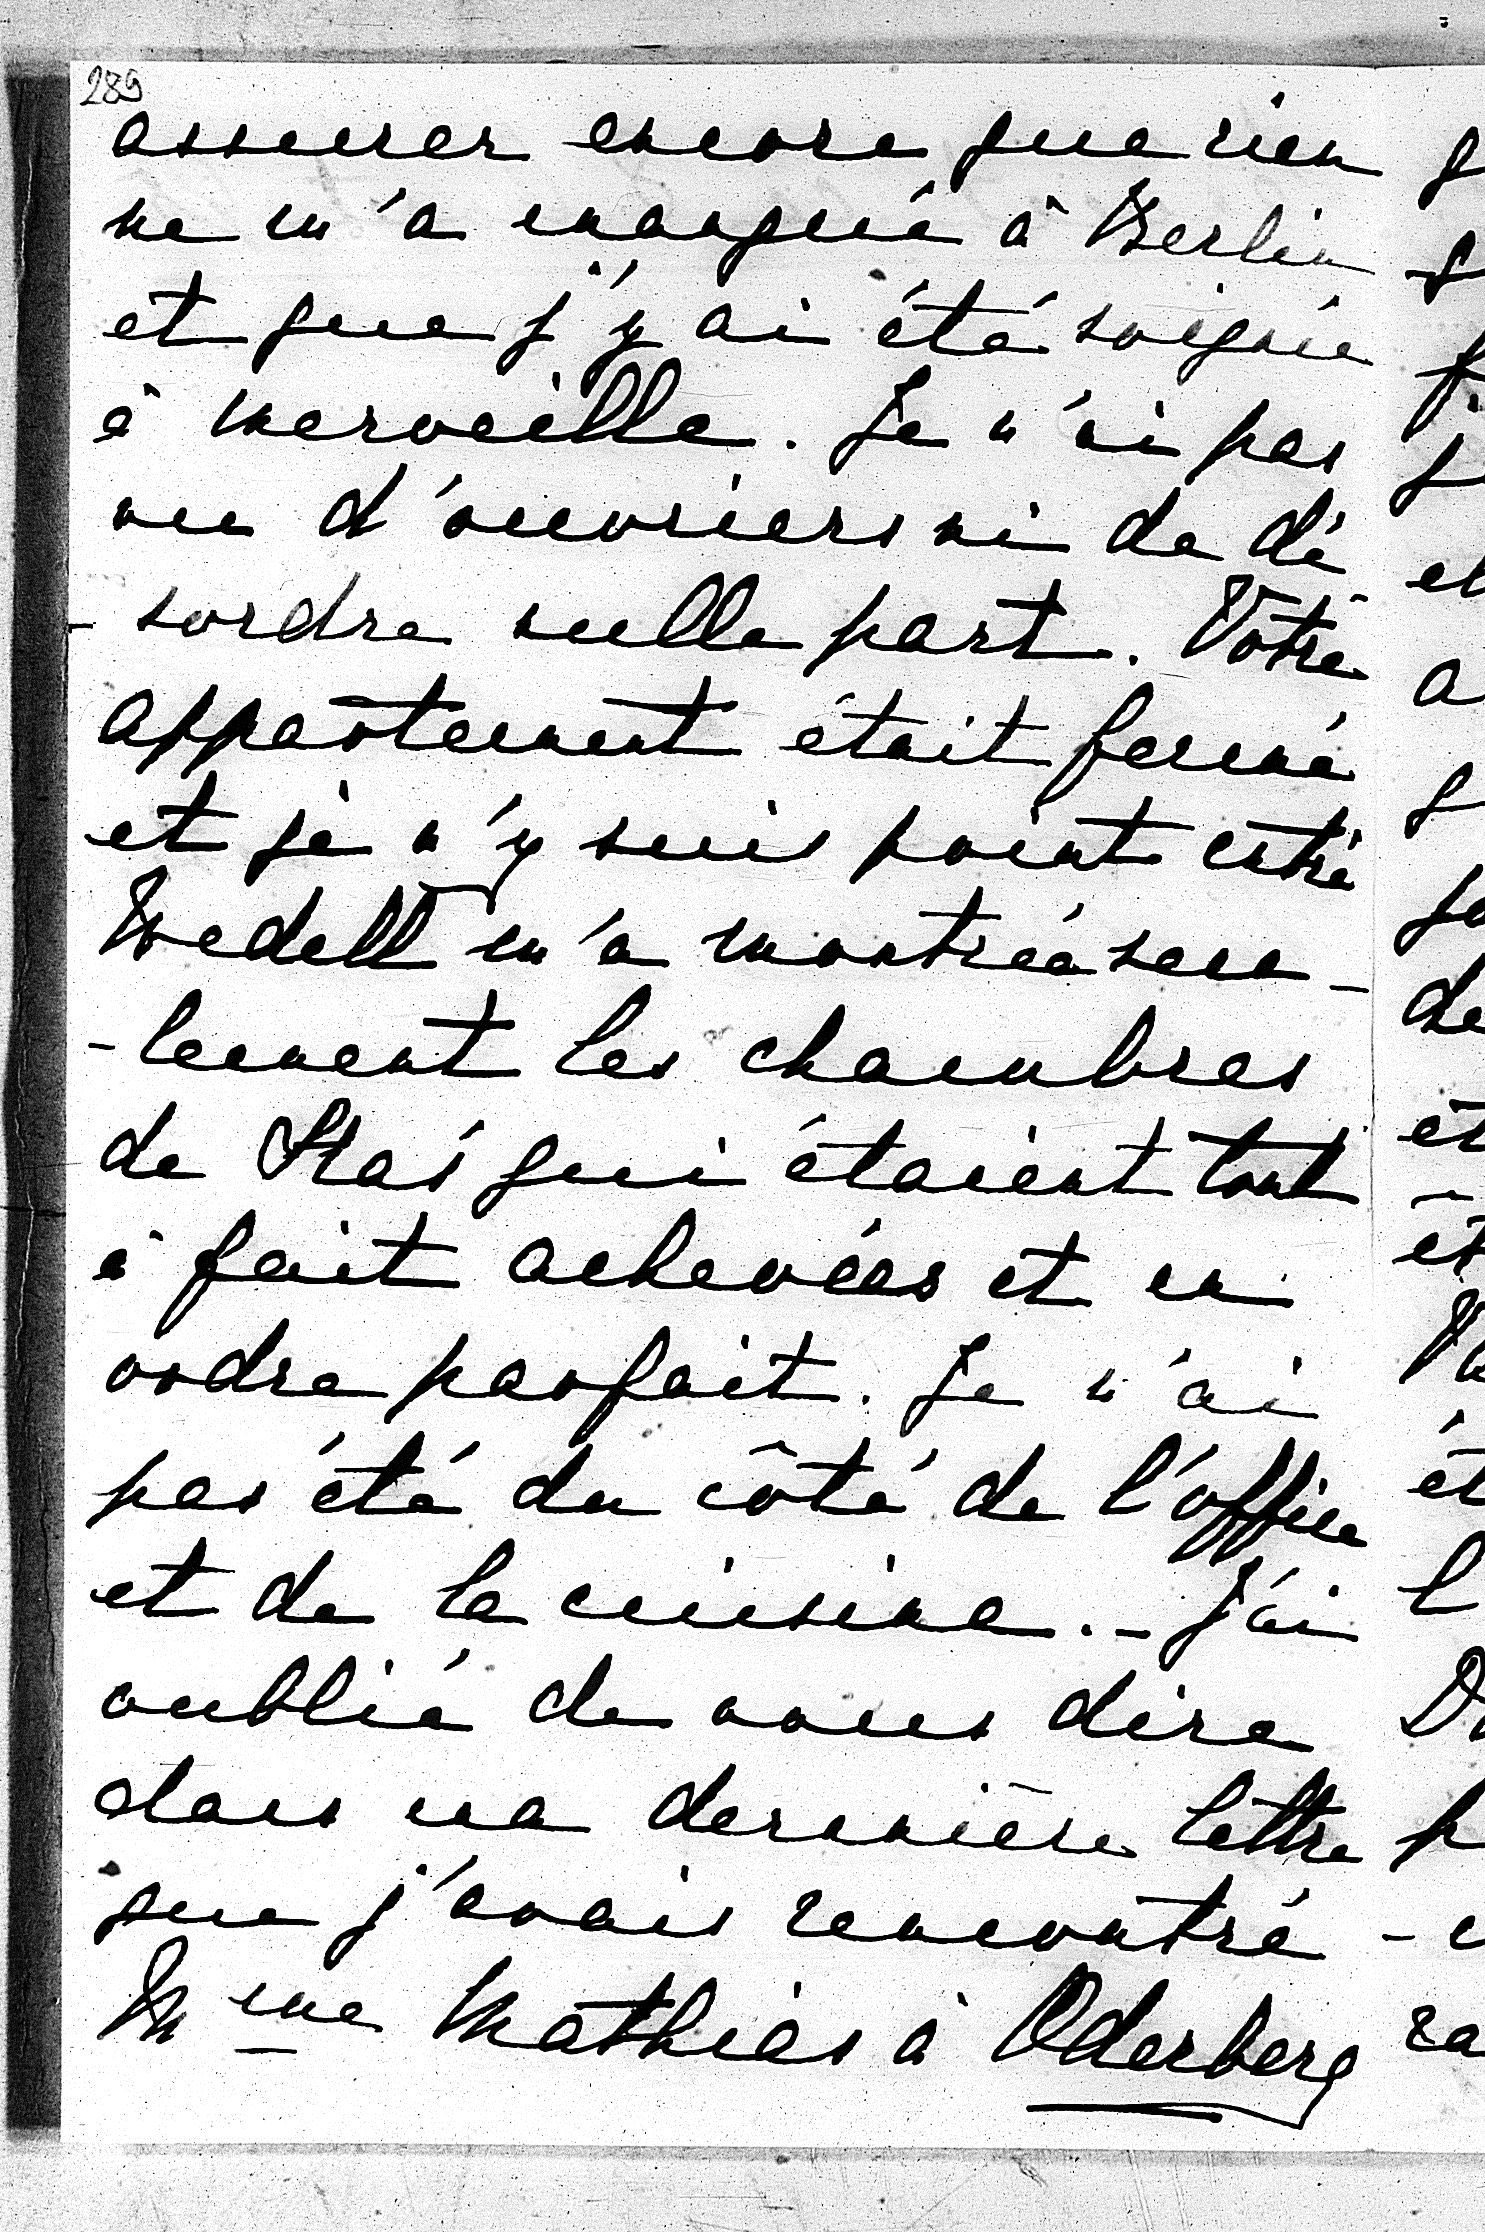 289
assurer encore que rien
ne m'a manqué à Berlin
et que j'y ai été soignée
à merveille. Je n'ai pas
vu d'ouvriers ni de dé
-sordre nulle part. Votre
appartement était fermé
et je n'y suis point entré
Wedell m'a montré seu-
-lement les chambres
de Stas qui étaient tout
à fait achevées et en
ordre parfait. Je n'ai
pas été du côté de l'office
et de la cuisine. - J'ai
oublié de vous dire
dans ma dernière lettre
que j'avais rencontré
Mme Mathias à Oderberg